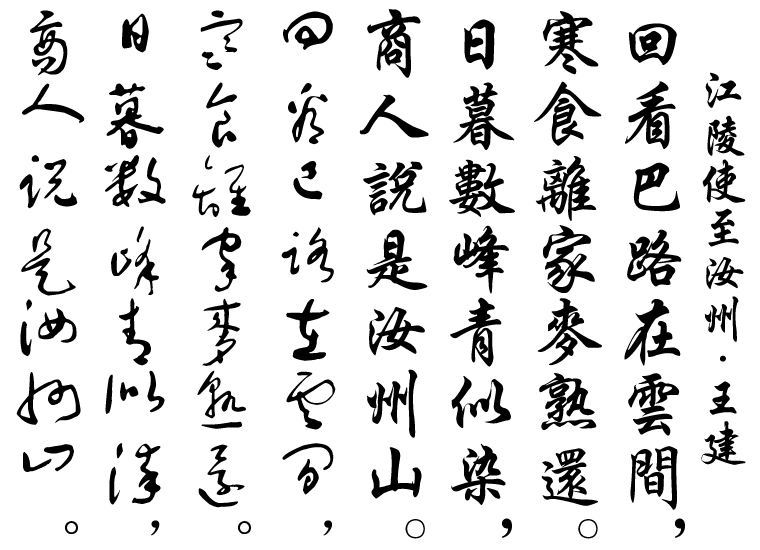 江陵使至汝州·王建
回看巴路在雲間，
寒食離家麥熟還。
日暮數峰青似染，
商人說是汝州山。
回看巴路在雲間，
寒食離家麥熟還。
日暮數峰青似染，
商人說是汝州山。